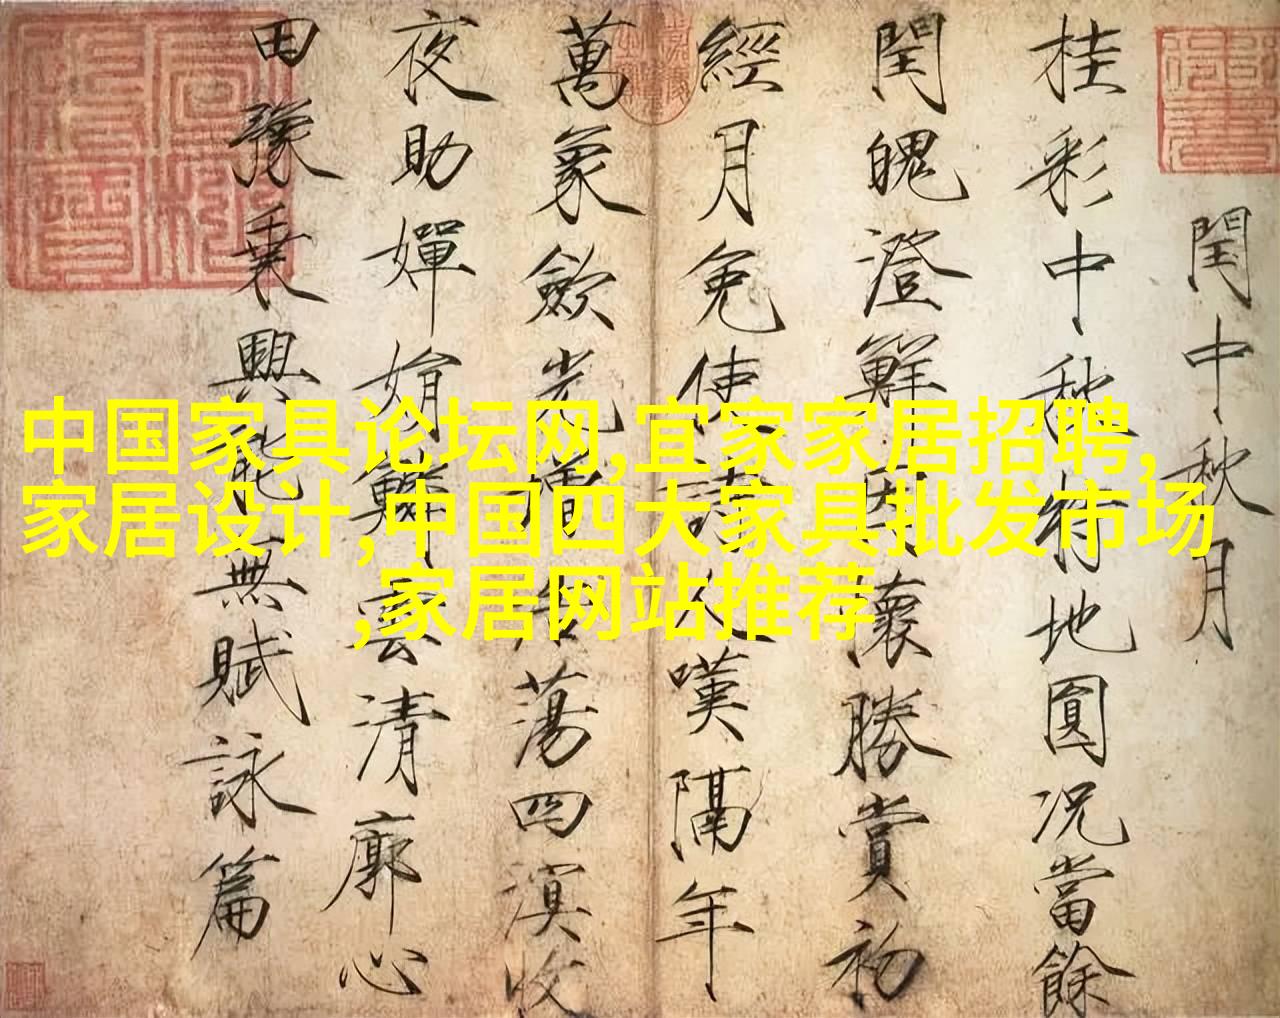 中国家具论坛网,宜家家居招聘,
家居设计,中国四大家具批发市场
,家居网站推荐
閏中秋月
桂彩中秋特地圓况當餘
閏魄澄鮮因懷勝賞初
經月免使詩人嘆隔年
萬象歛光增浩蕩四溟收
夜助嬋娟鱗雲清廓心
田豫乗興能無賦詠篇